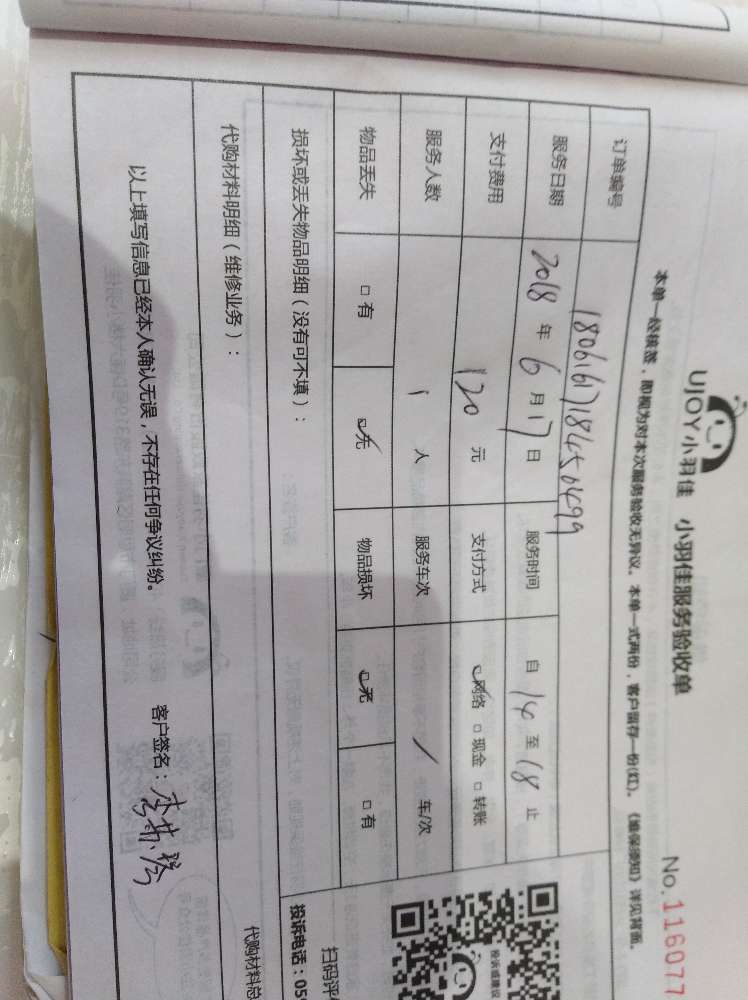 UJOY小羽佳 小羽佳服务验收单
No.116077
本单一经核签，即视为对本次服务验收无异议。本单一式两份，客户留存一份(红)。《维保须知》详见背面。
订单编号 18061617184501499
服务日期 2018 年 6 月 17 日 服务时间 自 14 至 18 止
支付费用 120 元 支付方式 ☑网络 □现金 □转账
服务人数 1 人 服务车次 / 车/次
物品丢失 □有 ☑无 物品损坏 ☑无 □有
损坏或丢失物品明细（没有可不填）：
代购材料明细（维修业务）：
代购材料总
以上填写信息已经本人确认无误，不存在任何争议纠纷。
客户签名：
投诉或建议
扫码评
投诉电话：05